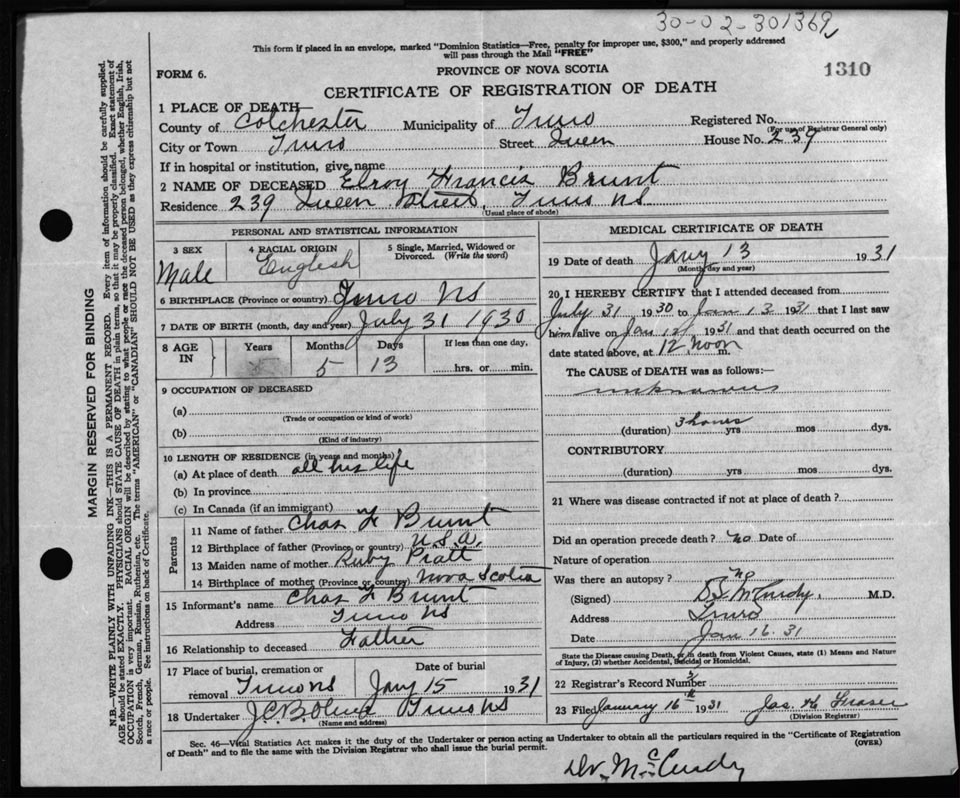 30-02-301369
This form if placed in an envelope, marked "Dominion Statistics—Free, penalty for improper use, $300," and properly addressed
will pass through the Mail "FREE"
FORM 6.
PROVINCE OF NOVA SCOTIA
1310
CERTIFICATE OF REGISTRATION OF DEATH
1 PLACE OF DEATH—
County of Colchester Municipality of Truro Registered No.
(For use of Registrar General only)
City or Town Truro Street Queen House No. 239
If in hospital or institution, give name
2 NAME OF DECEASED Elroy Francis Brunt
Residence 239 Queen Street, Truro NS
(Usual place of abode)
PERSONAL AND STATISTICAL INFORMATION
3 SEX
Male
4 RACIAL ORIGIN
English
5 Single, Married, Widowed or
Divorced. (Write the word)
6 BIRTHPLACE (Province or country) Truro NS
7 DATE OF BIRTH (month, day and year) July 31 1930
8 AGE
IN
Years Months Days If less than one day,
5 13 hrs. or min.
9 OCCUPATION OF DECEASED
(a)
(Trade or occupation or kind of work)
(b)
(Kind of industry)
10 LENGTH OF RESIDENCE (in years and months)
(a) At place of death all his life
(b) In province
(c) In Canada (if an immigrant)
Parents
11 Name of father Chas F Brunt
12 Birthplace of father (Province or country) U.S.A.
13 Maiden name of mother Ruby Pratt
14 Birthplace of mother (Province or country) Nova Scotia
15 Informant's name Chas F Brunt
Address Truro NS
16 Relationship to deceased Father
17 Place of burial, cremation or Date of burial
removal Truro NS Jany 15 1931
18 Undertaker J.C.B. Truro NS
(Name and address)
MEDICAL CERTIFICATE OF DEATH
19 Date of death Jany 13 1931
(Month, day and year)
20 I HEREBY CERTIFY that I attended deceased from
July 31 1930 to Jan 13 1931 that I last saw
him alive on Jan 1931 and that death occurred on the
date stated above, at 12 noon m.
The CAUSE of DEATH was as follows:—
unknown
3 hours
(duration) yrs mos dys.
CONTRIBUTORY
(duration) yrs mos dys.
21 Where was disease contracted if not at place of death?
Did an operation precede death? no Date of
Nature of operation
Was there an autopsy? no
(Signed) McCurdy, M.D.
Address Truro
Date Jan 16. 31
State the Disease causing Death, or in death from Violent Causes, state (1) Means and Nature
of Injury, (2) whether Accidental, Suicidal or Homicidal.
22 Registrar's Record Number
23 Filed January 16th 1931 Jas. H Fraser
(Division Registrar)
Sec. 46—Vital Statistics Act makes it the duty of the Undertaker or person acting as Undertaker to obtain all the particulars required in the "Certificate of Registration
of Death" and to file the same with the Division Registrar who shall issue the burial permit.
(OVER)
Dr. McCurdy
MARGIN RESERVED FOR BINDING
N.B.—WRITE PLAINLY WITH UNFADING INK—THIS IS A PERMANENT RECORD. Every item of information should be carefully supplied.
AGE should be stated EXACTLY. PHYSICIANS should STATE CAUSE OF DEATH in plain terms, so that it may be properly classified. Exact statement of
OCCUPATION is very important. RACIAL ORIGIN will be described by stating to what people or race the deceased person belonged, whether English, Irish,
Scotch, French, German, Russian, Ruthenian, etc. The terms "AMERICAN" or "CANADIAN" SHOULD NOT BE USED as they express citizenship but not
a race or people. See instructions on back of Certificate.